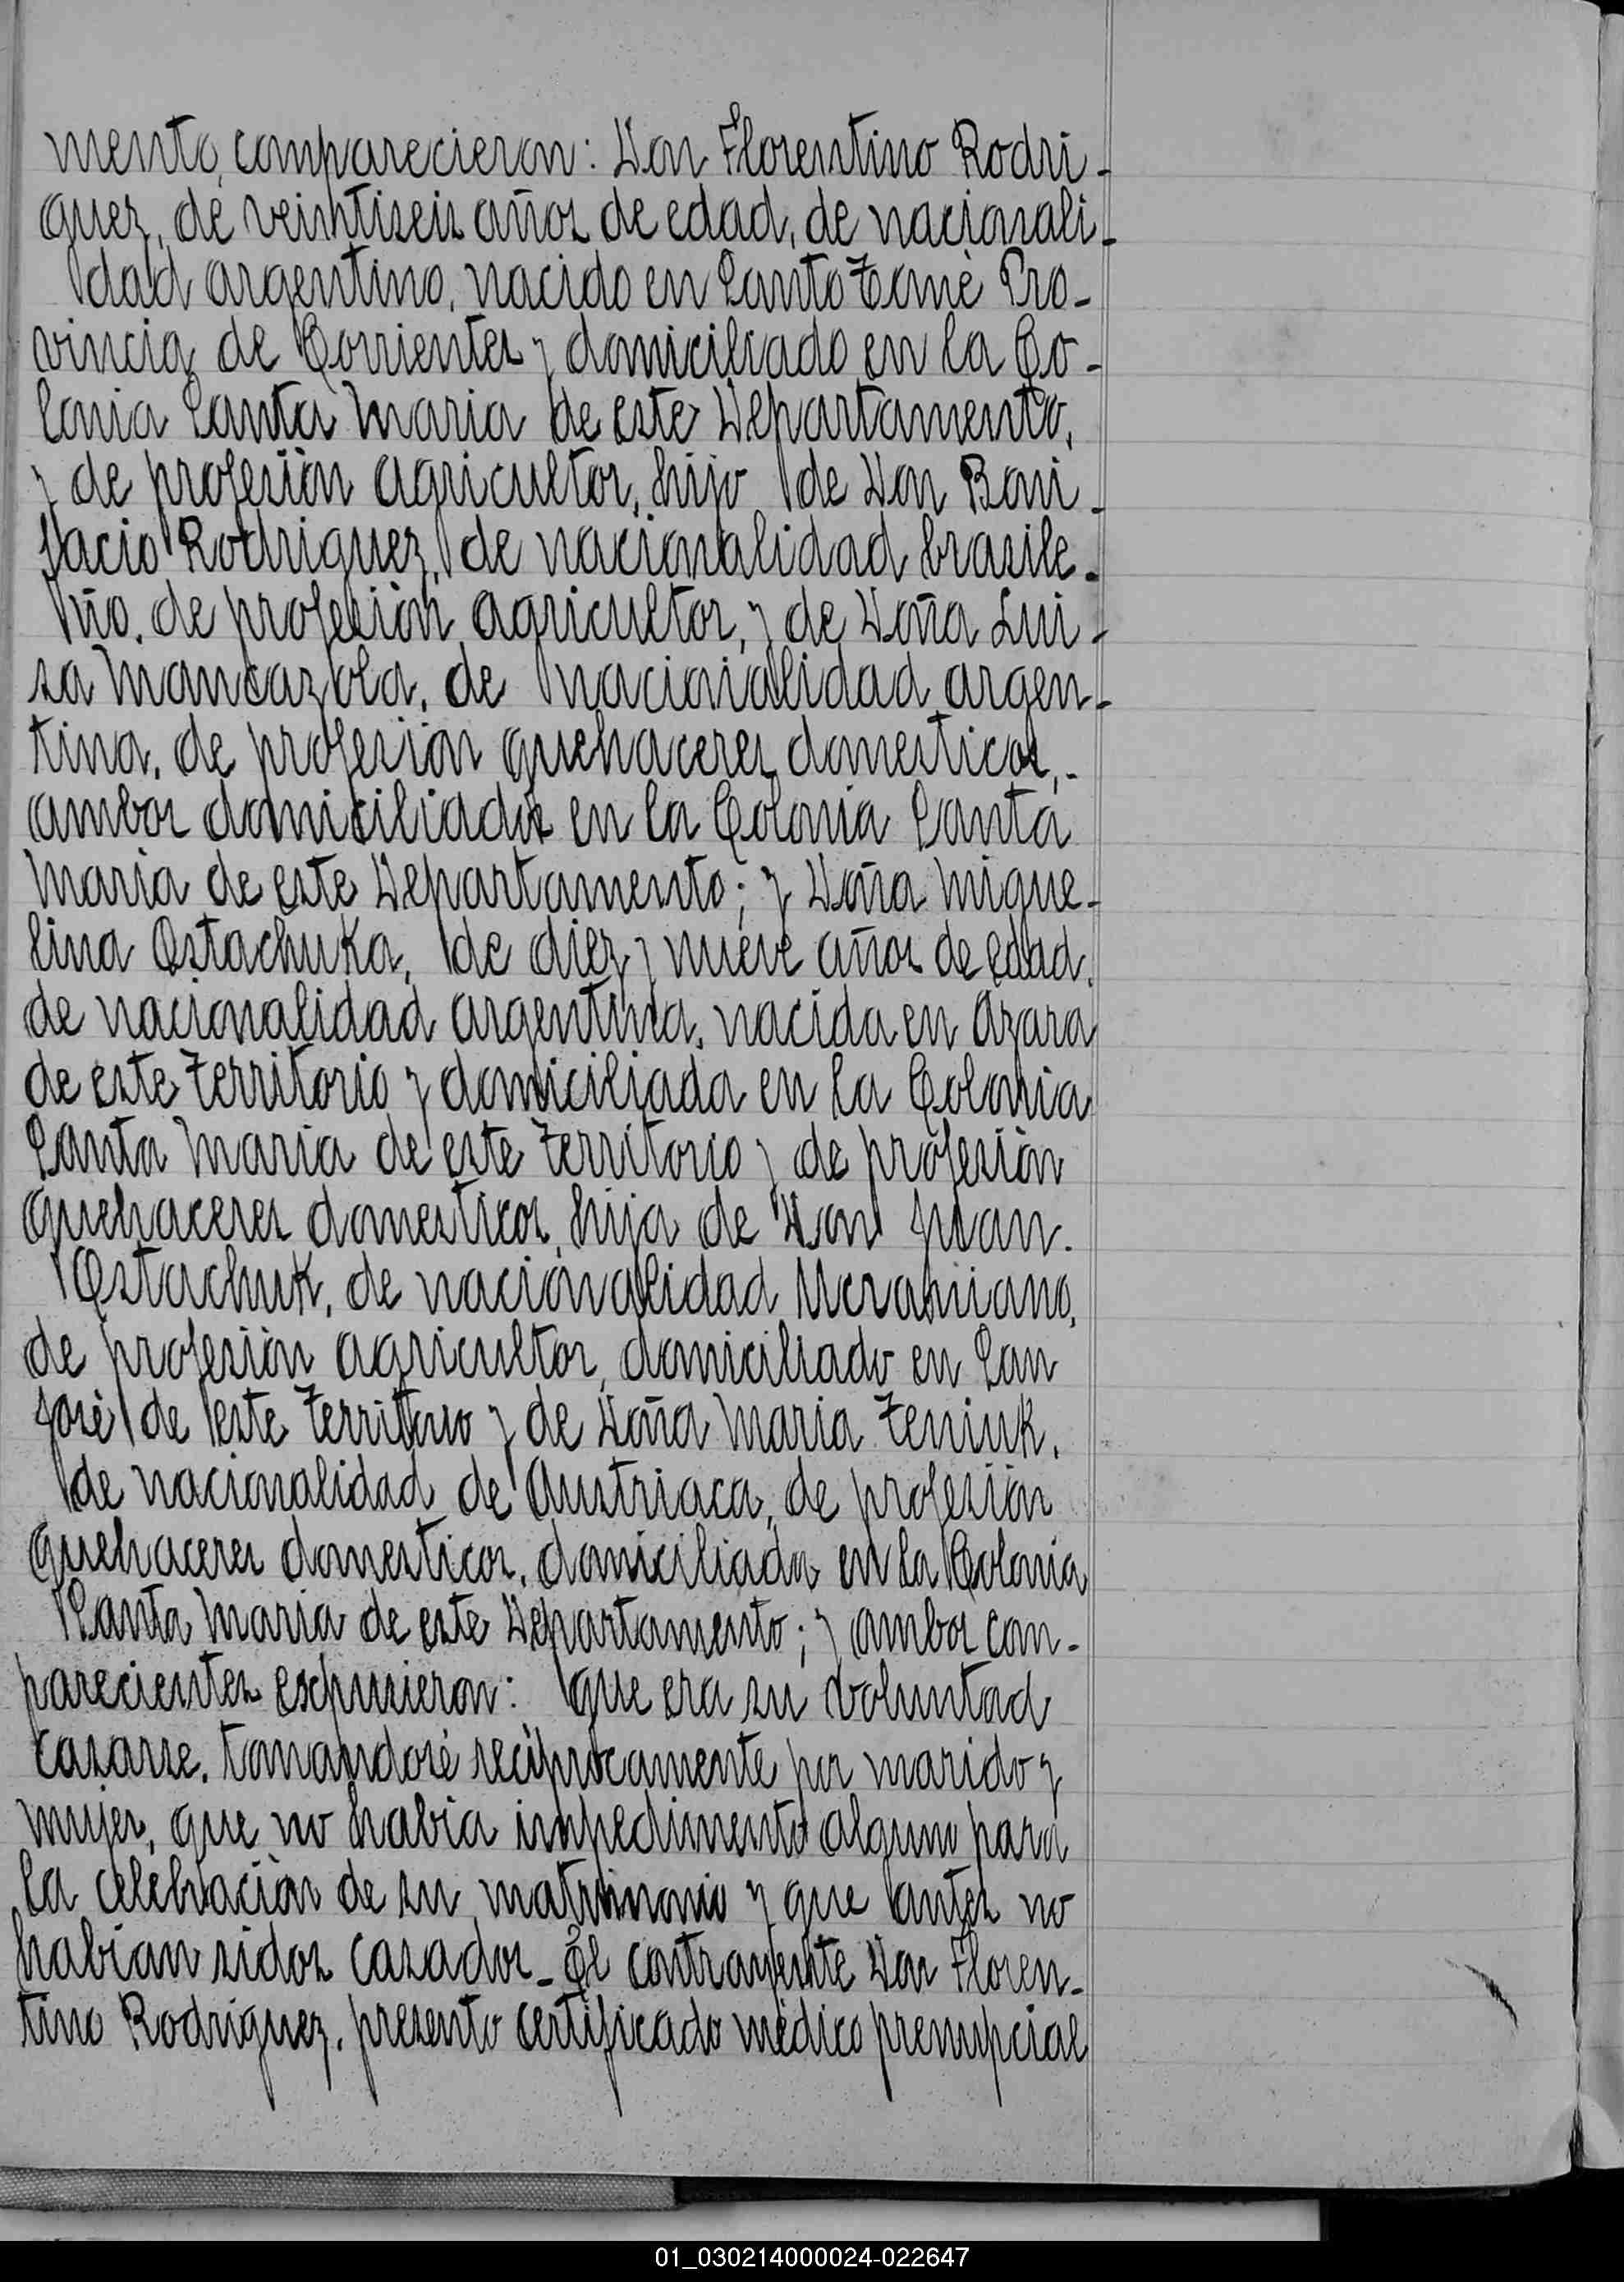 mento, comparecieron: Don Florentino Rodri-
guez, de veintiseis años de edad, de nacionali-
dad argentino, nacido en Santo Tomè Pro-
vincia de Corrientes y domiciliado en la Co-
lonia Santa Maria de este Departamento,
y de profesiòn agricultor, hijo de Don Boni-
facio Rodriguez, de nacionalidad brasile-
ño, de profesiòn agricultor, y de Doña Lui-
sa Mancazola, de nacionalidad argen-
tina, de profesiòn quehaceres domesticos,-
ambos domiciliados en la Colonia Santa
Maria de este Departamento; y Doña Migue-
lina Ostachuka, de diez y nueve años de edad,
de nacionalidad argentina, nacida en Azara
de este Territorio y domiciliada en la Colonia
Santa Maria de este Territorio y de profesiòn
quehaceres domesticos, hija de Don Juan.
Ostachuk, de nacionalidad Ucrahiano,
de profesiòn agricultor, domiciliado en San
Josè de este Territorio y de Doña Maria Zeniuk,
de nacionalidad de Austriaca, de profesiòn
quehaceres domesticos, domiciliada en la Colonia
Santa Maria de este Departamento; y ambos com-
parecientes expusieron: que era su voluntad
casarse, tomandose reciprocamente por marido y
mujer, que no habia impedimento alguno para
la celebraciòn de su matrimonio y que antes no
habian sidos casados- El contrayente Don Floren-
tino Rodriguez, presento certificado mèdico prenupcial
01_030214000024-022647